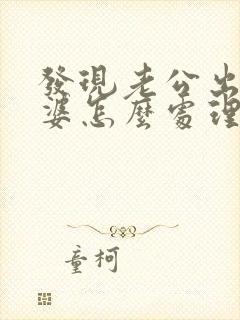 發現老公出
婆怎麼處理
童柯